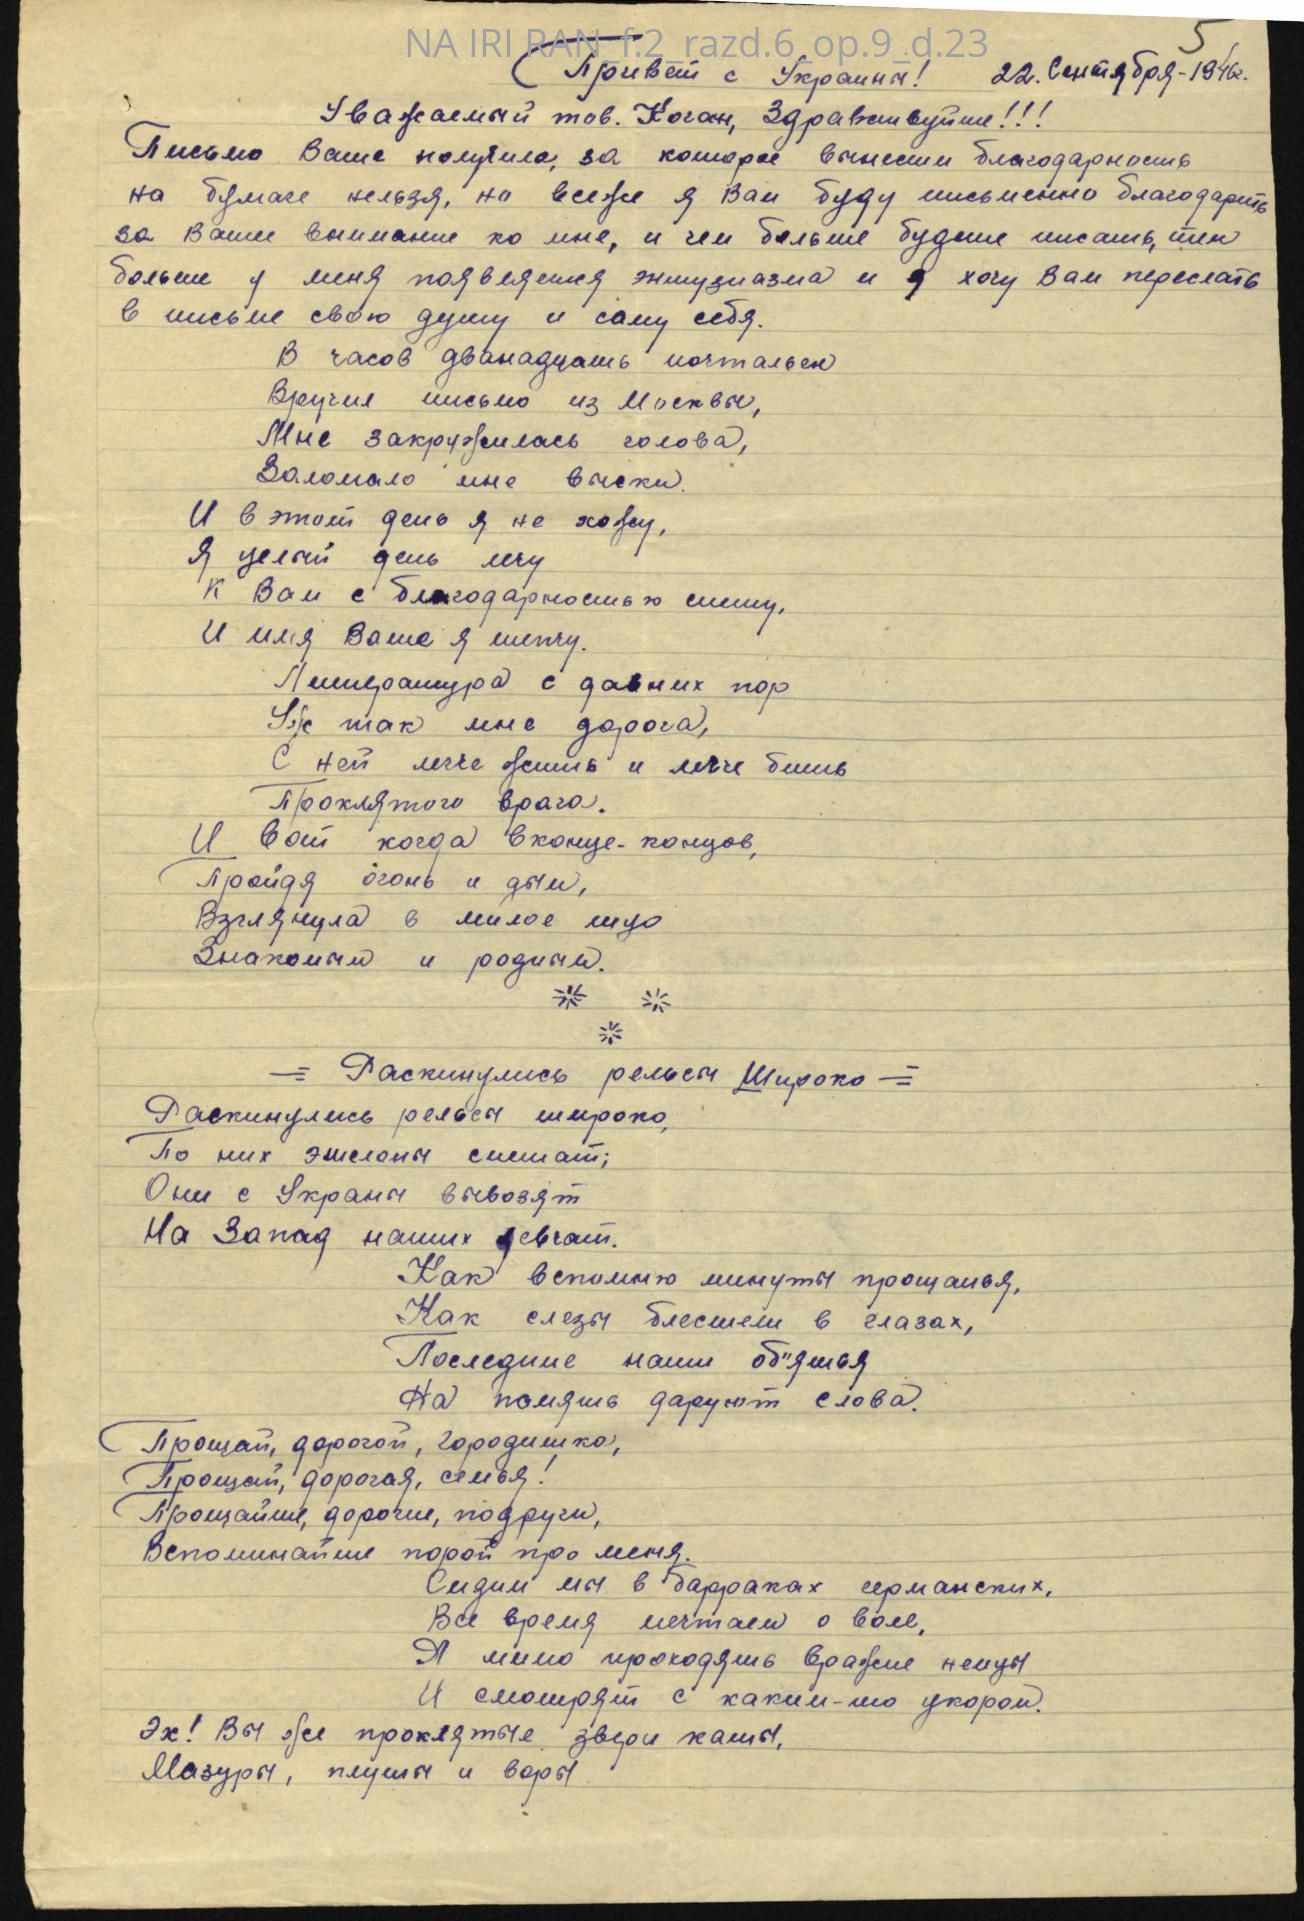 NA IRI RAN_f.2_razd.6_op.9_d.23
5
Привет с Украины! 22. Сентября-1946г.
Уважаемый тов. Коган, Здравствуйте!!!
Письмо Ваше получила, за которое вынести благодарность
на бумаге нельзя, но всеже я Вам буду письменно благодарить
за Ваше внимание ко мне, и чем больше будете писать, тем
больше у меня появляется энтузиазма и я хочу Вам переслать
в письме свою душу и саму себя.
В часов дванадцать почтальен
Вручил письмо из Москвы,
Мне закружилась голова,
Заломало мне выски.
И в этот день я не хожу,
Я целый день лечу
К Вам с благодарностью спешу,
И имя Ваше я шепчу.
Литература с давних пор
Уж так мне дорога,
С ней легче жить и легче бить
Проклятого врага.
И вот когда вконце-концов,
Пройдя огонь и дым,
Взглянула в милое лицо
Знакомым и родным.
— Раскинулись рельсы Широко —
Раскинулись рельсы широко,
По них эшелоны спешат;
Они с Украны вывозят
На Запад наших девчат.
Как вспомню минуты прощанья,
Как слезы блестели в глазах,
Последние наши об"ятья
На память даруют слова.
Прощай, дорогой, городишко,
Прощай, дорогая, семья!
Прощайте, дорогие, подруги,
Вспоминайте порой про меня.
Сидим мы в барраках германских,
Все время мечтаем о воле,
А мимо проходять вражие немцы
И смотрят с каким-то укором.
Эх! Вы же проклятые звери каты,
Мазуры, плуты и воры